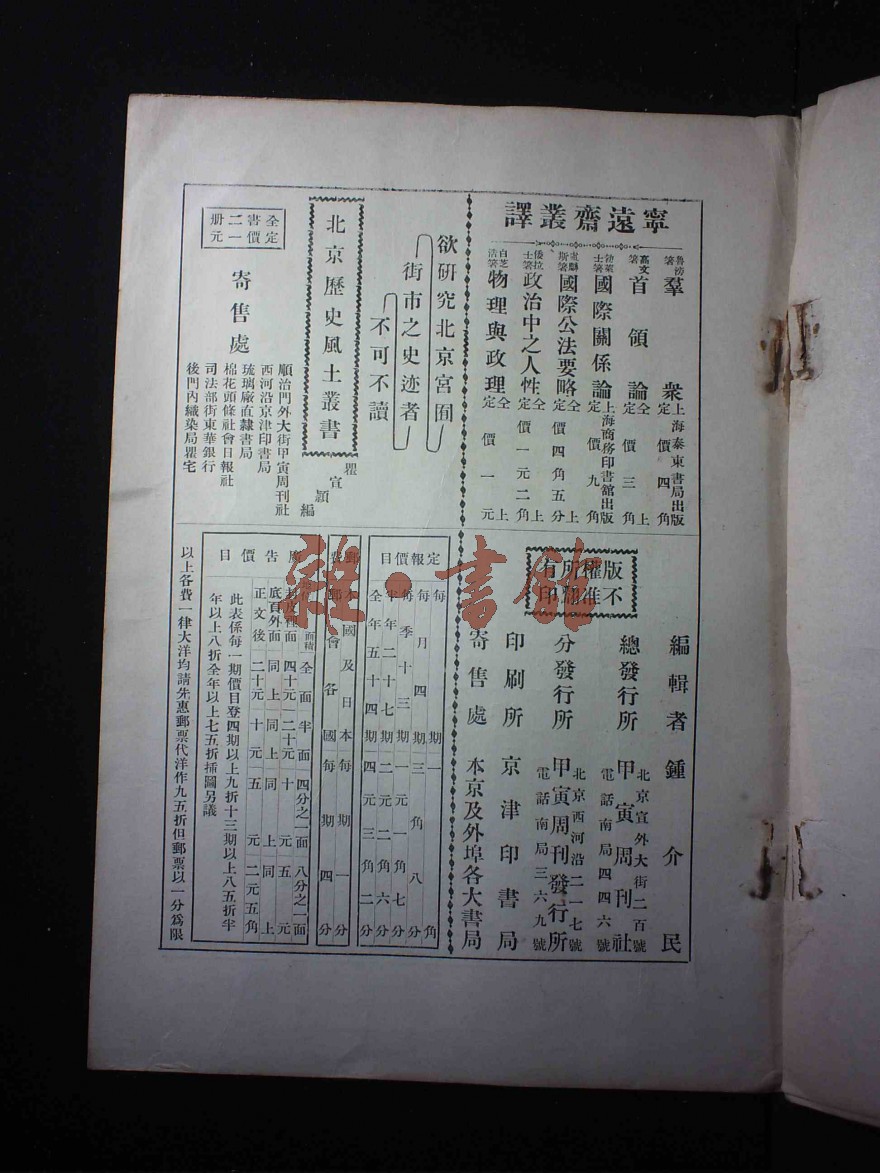 寧遠齋叢譯
魯滂著 羣衆 上海泰東書局出版 定價四角
高文著 首領論 仝上 定價三角
勃萊士著 國際關係論 上海商務印書館出版 定價九角
斯著 國際公法要略 仝上 定價四角五分
倭拉士著 政治中之人性 仝上 定價一元二角
白芝浩著 物理與政理 仝上 定價一元
欲研究北京宮囿
街市之史迹者
不可不讀
北京歷史風土叢書
瞿宣穎編
全書二册
定價一元
寄售處
順治門外大街甲寅周刊社
西河沿京津印書局
琉璃廠直隸書局
棉花頭條社會日報社
司法部街東華銀行
後門內織染局瞿宅
版權所有
不准翻印
編輯者 鍾介民
總發行所 甲寅周刊社
北京宣外大街二百號
電話南局四四六號
分發行所 甲寅周刊發行所
北京西河沿二一七號
電話南局三六九號
印刷所 京津印書局
寄售處 本京及外埠各大書局
定報價目
每期一角
每月四期三角八分
每季十三期一元一角七分
半年二十七期二元二角六分
全年五十四期四元三角二分
郵費
本國及日本每期一分
郵會各國每期四分
廣告價目
面積 全面 半面 四分之一面 八分之一面
封皮裡面 四十元 二十元 十元 五元
底頁外面 同上 同上 同上 同上
正文後 二十元 十元 五元 二元五角
此表係每一期價目登四期以上九折十三期以上八五折半
年以上八折全年以上七五折插圖另議
以上各費一律大洋均請先惠郵票代洋作九五折但郵票以一分爲限
雜·書館